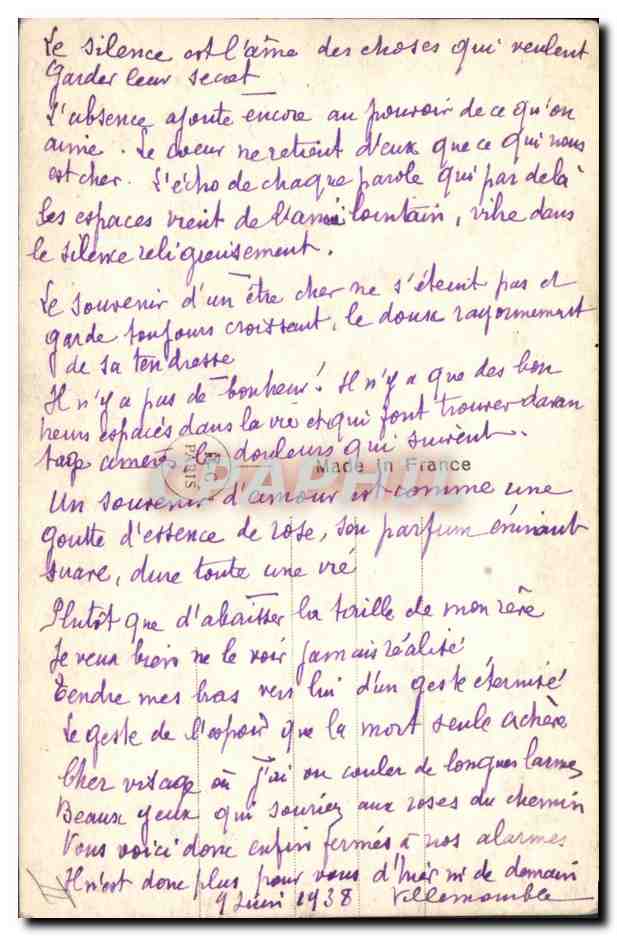 Le silence est l'âme des choses qui veulent
Garder leur secret
L'absence ajoute encore au pouvoir de ce qu'on
aime. Le coeur ne retient d'eux que ce qui nous
est cher. L'écho de chaque parole qui par delà
les espaces vient de l'ami lointain, vibre dans
le silence religieusement.
Le souvenir d'un être cher ne s'éteint pas et
garde toujours croissant, le doux rayonnement
de sa tendresse
Il n'y a pas de bonheur! Il n'y a que des bon
heurs espacés dans la vie et qui font trouver davan
tage amers les douleurs qui suivent.
PARIS
Made in France
APHIL
Un souvenir d'amour est comme une
goutte d'essence de rose, son parfum
suave, dure toute une vie
Plutôt que d'abaisser la taille de mon rêve
Je veux bien ne le voir jamais réalisé
Tendre mes bras vers lui d'un geste éternisé
Le geste de l'espoir que la mort seule achève
Cher visage où j'ai vu couler de longues larmes
Beaux yeux qui souriez aux roses du chemin
Vous voici donc enfin fermés à nos alarmes
Il n'est donc plus pour vous d'hier ni de demain
9 Juin 1938 Villemomble